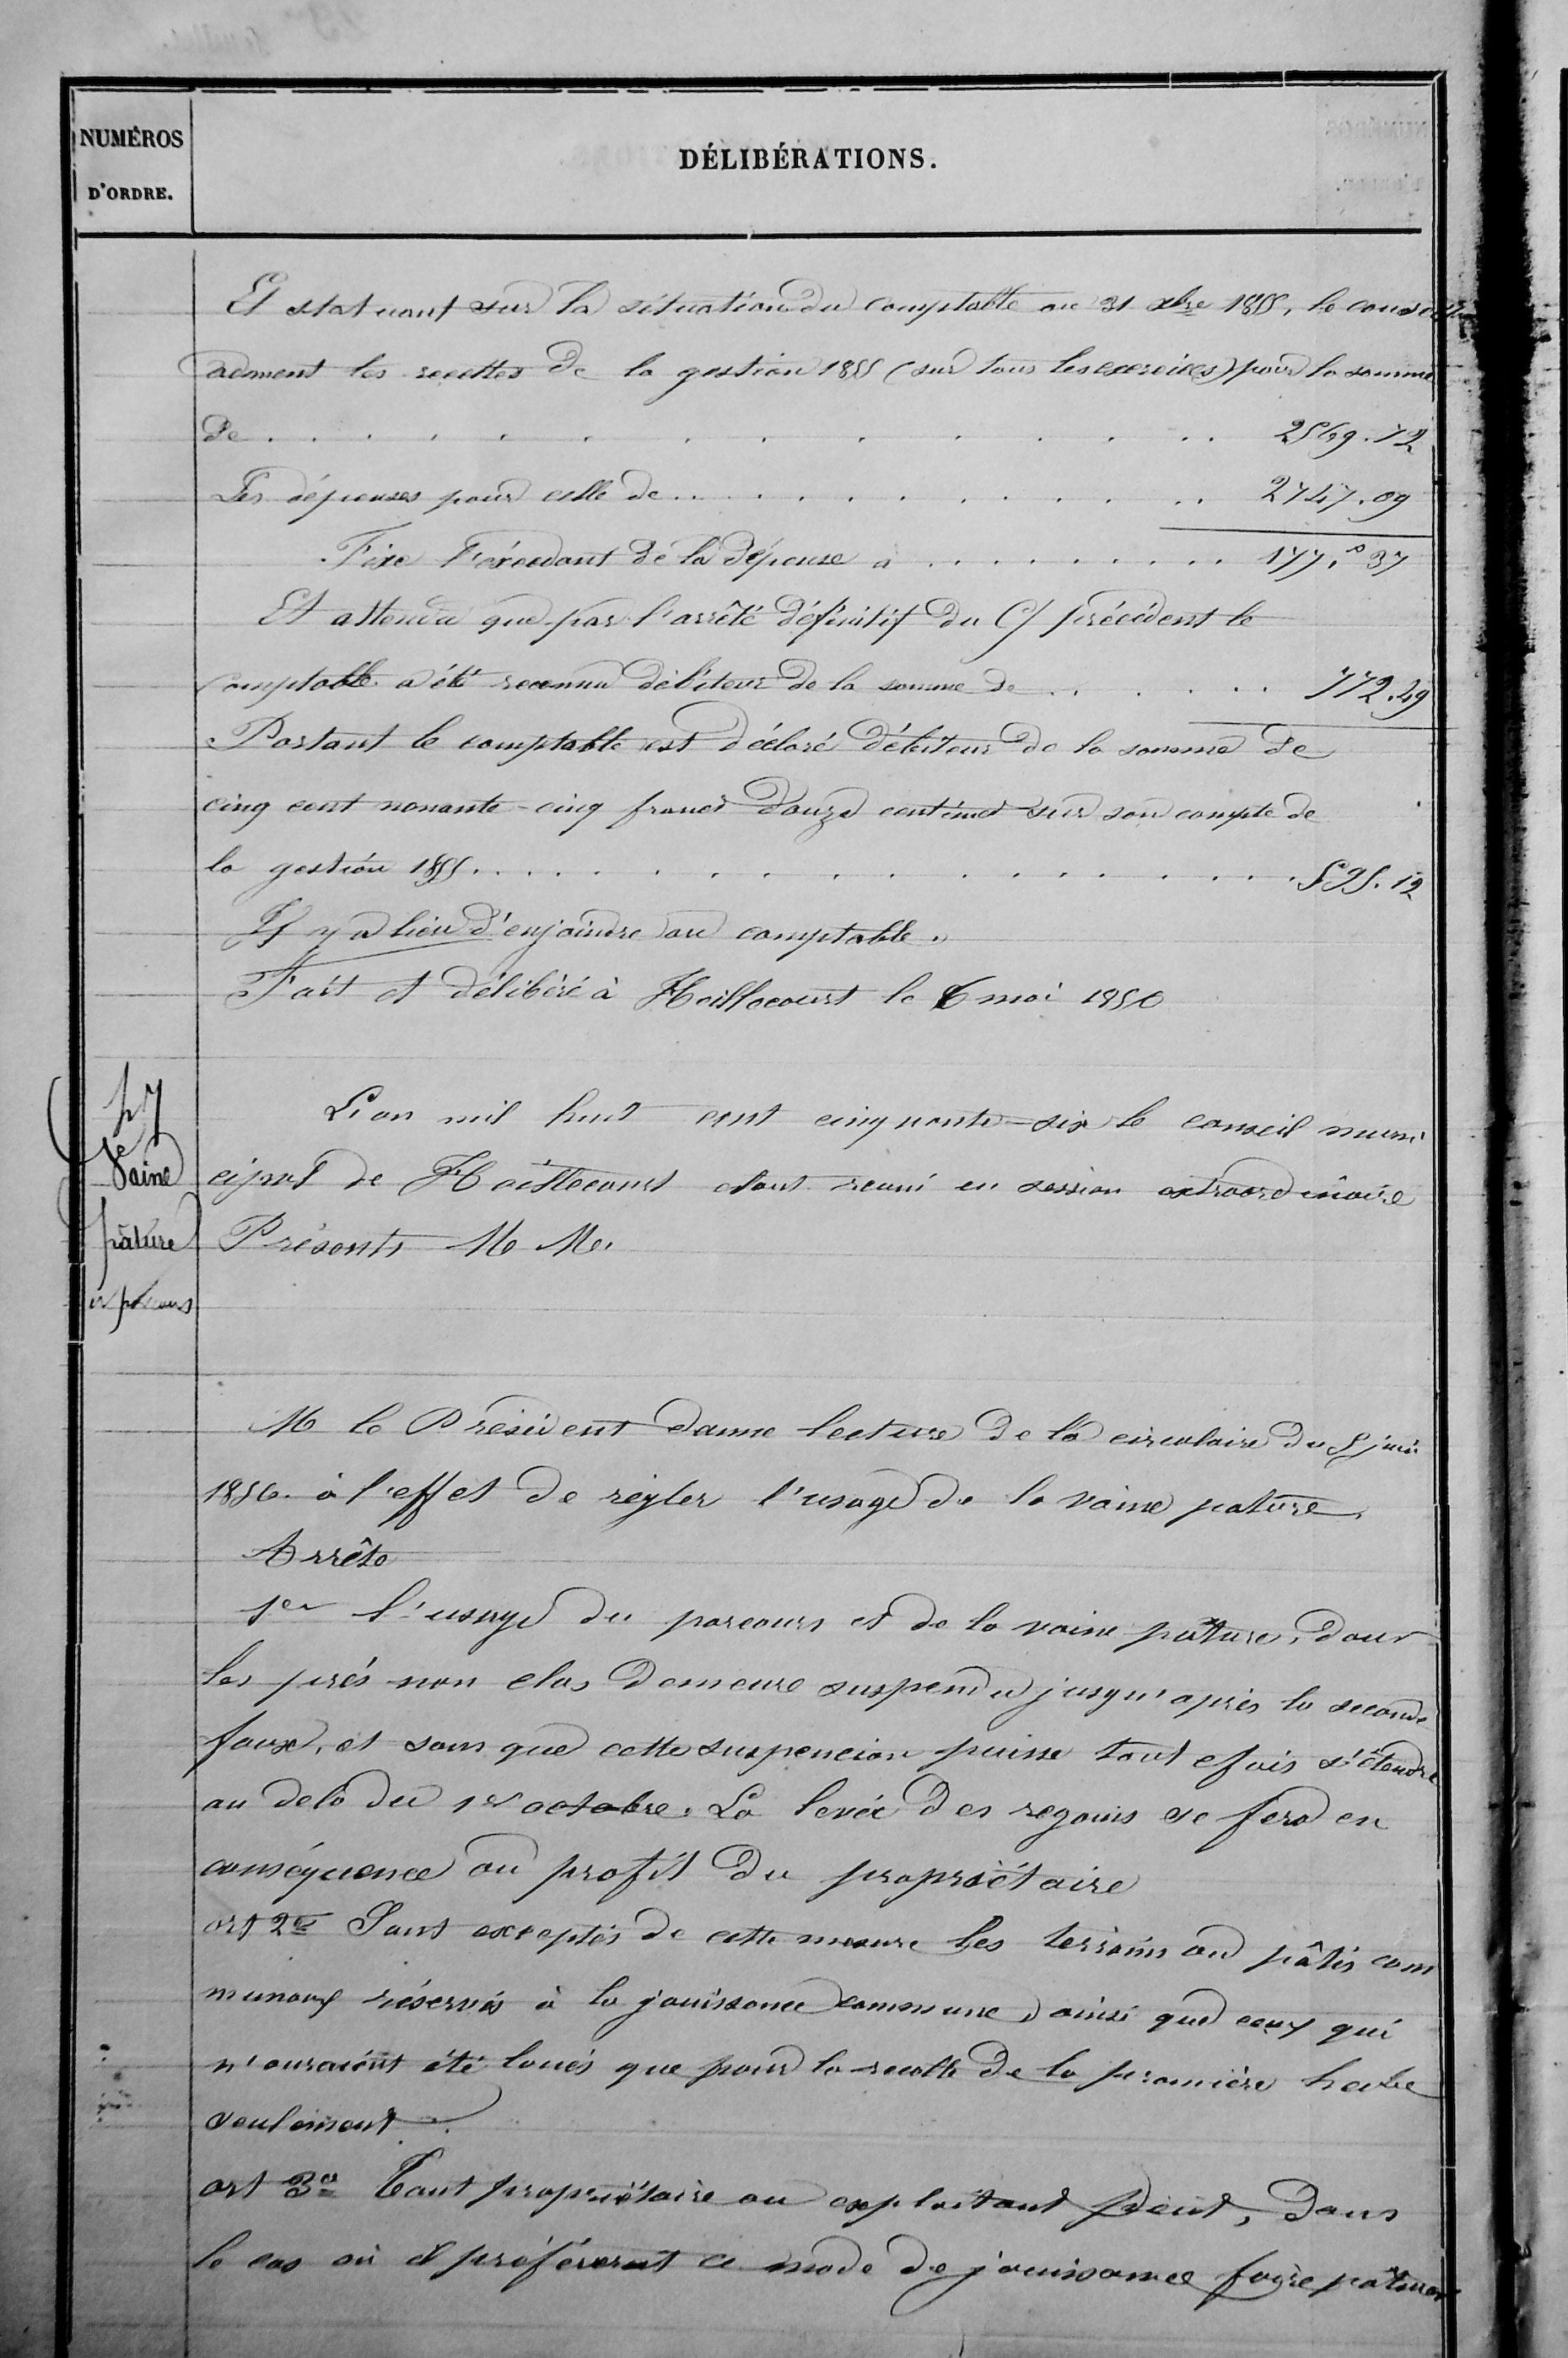 NUMÉROS
D'ORDRE.
DÉLIBÉRATIONS.
Et statuant sur la situation du comptable au 31 xbre 1855, le conseil
adment les recettes de la gestion 1855 (sur tous les exercices) pour la somme
de . . . . . . . . . . . . . 2569.72
Les dépenses pour celle de . . . . . . . . . . . 2747.09
Fixe l'éxcedant de la dépense à . . . . . . . . . 177. 37
Et attendu que par l'arrêté définitif du C/ précédent le
comptable a été reconnu débiteur de la somme de . . . . . 772.49
Partant le comptable est déclaré débiteur de la somme de
cinq cent nonante-cinq francs douze centimes sur son compte de
la gestion 1855 . . . . . . . . . . . . . . 595.12
Il y a lieu d'enjoindre au comptable.
Fait et délibéré à Heillecourt le 6 mai 1856
47
Vaine
pâture
et parcours
L'an mil huit cent cinquante-six le conseil muni
cipal de Heillecourt étant reuni en session extraordinaire
Présents M M.
M le Président donne lecture de la circulaire du 5 juin
1856. à l'effet de régler l'usage de la vaine pature.
Arrête
1er l'usage du parcours et de la vaine pâture, dans
les prés non clos demeure suspendu jusqu'après la seconde
faux, et sans que cette suspencion puisse tout efois s'étendre
au delà du 1er octobre. La levée des regains se fera en
conséquence au profit du propriétaire
art 2e Sont exceptés de cette mesure les terrains ou pâtis com
munaux réservés à la jouissance commune, ainsi que ceux qui
n'auraient été loués que pour la recolte de la première herbe
seulement.
art 3e Tout propriétaire ou exploitant peut, dans
le cas où il préférerait ce mode de jouissance faire pâturer